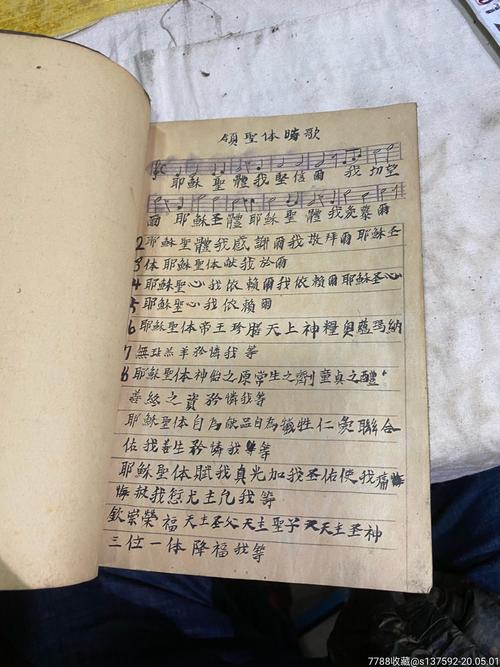 領聖体時歌
耶穌 聖體我堅信爾 我切望
面 耶穌圣體耶穌聖體我愛慕爾
2耶穌聖體我感謝爾我敬拜爾耶穌圣
3体耶穌聖体献我於爾
4耶穌聖心我依賴爾我依賴爾耶穌圣心
5耶穌聖心我依賴爾
6耶穌聖体帝王珍膳天上神糧奥蔴瑪納
7無玷羔羊矜憐我等
8耶穌聖体神飴之原常生之劑童貞之醴
善終之資矜憐我等
耶穌聖体自為献品自為犧牲仁爱聯合
佑我善生矜憐我等
耶穌聖体賦我真光加我圣佑使我痛悔
悔赦我愆尤主允我等
欽崇榮福天主圣父天主聖子天主圣神
三位一体降福我等
7788收藏@s137592-20.05.01